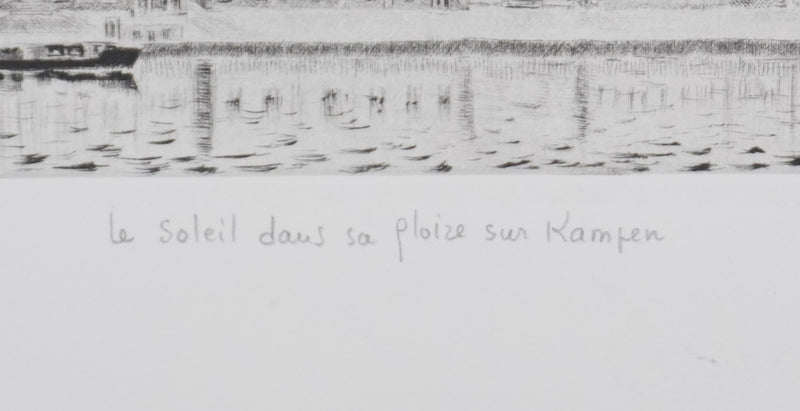 le soleil dans sa gloire sur Kampen